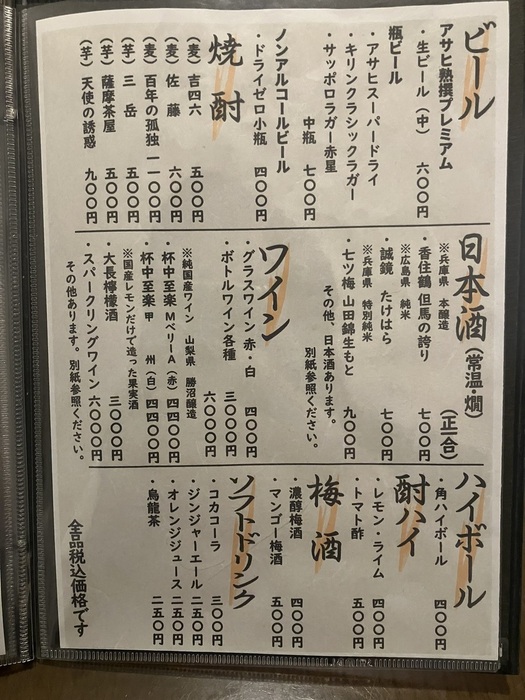 ビール
アサヒ熟撰プレミアム
・生ビール（中） 六〇〇円
瓶ビール
・アサヒスーパードライ
・キリンクラシックラガー
・サッポロラガー赤星
中瓶 七〇〇円
ノンアルコールビール
・ドライゼロ小瓶 四〇〇円
焼酎
（麦）吉四六 五〇〇円
（麦）佐藤 六〇〇円
（麦）百年の孤独 一一〇〇円
（芋）三岳 五〇〇円
（芋）薩摩茶屋 五〇〇円
（芋）天使の誘惑 九〇〇円
日本酒（常温・燗）（正一合）
※兵庫県 本醸造
・香住鶴 但馬の誇り 七〇〇円
※広島県 純米
・誠鏡 たけはら 七〇〇円
※兵庫県 特別純米
・七ツ梅 山田錦生もと 九〇〇円
その他、日本酒あります。
別紙参照ください。
ワイン
・グラスワイン 赤・白 四〇〇円
・ボトルワイン各種 三〇〇〇円
六〇〇〇円
※純国産ワイン 山梨県 勝沼醸造
・杯中至楽 MベリーA（赤）四四〇〇円
・杯中至楽 甲州（白）四四〇〇円
※国産レモンだけで造った果実酒
・大長檸檬酒 三〇〇〇円
・スパークリングワイン 六〇〇〇円
その他あります。別紙参照ください。
ハイボール
・角ハイボール 四〇〇円
酎ハイ
・レモン・ライム 四〇〇円
・トマト酢 五〇〇円
梅酒
・濃醇梅酒 四〇〇円
・マンゴー梅酒 五〇〇円
ソフトドリンク
・コカコーラ 三〇〇円
・ジンジャーエール 二五〇円
・オレンジジュース 二五〇円
・烏龍茶 二五〇円
全品税込価格です